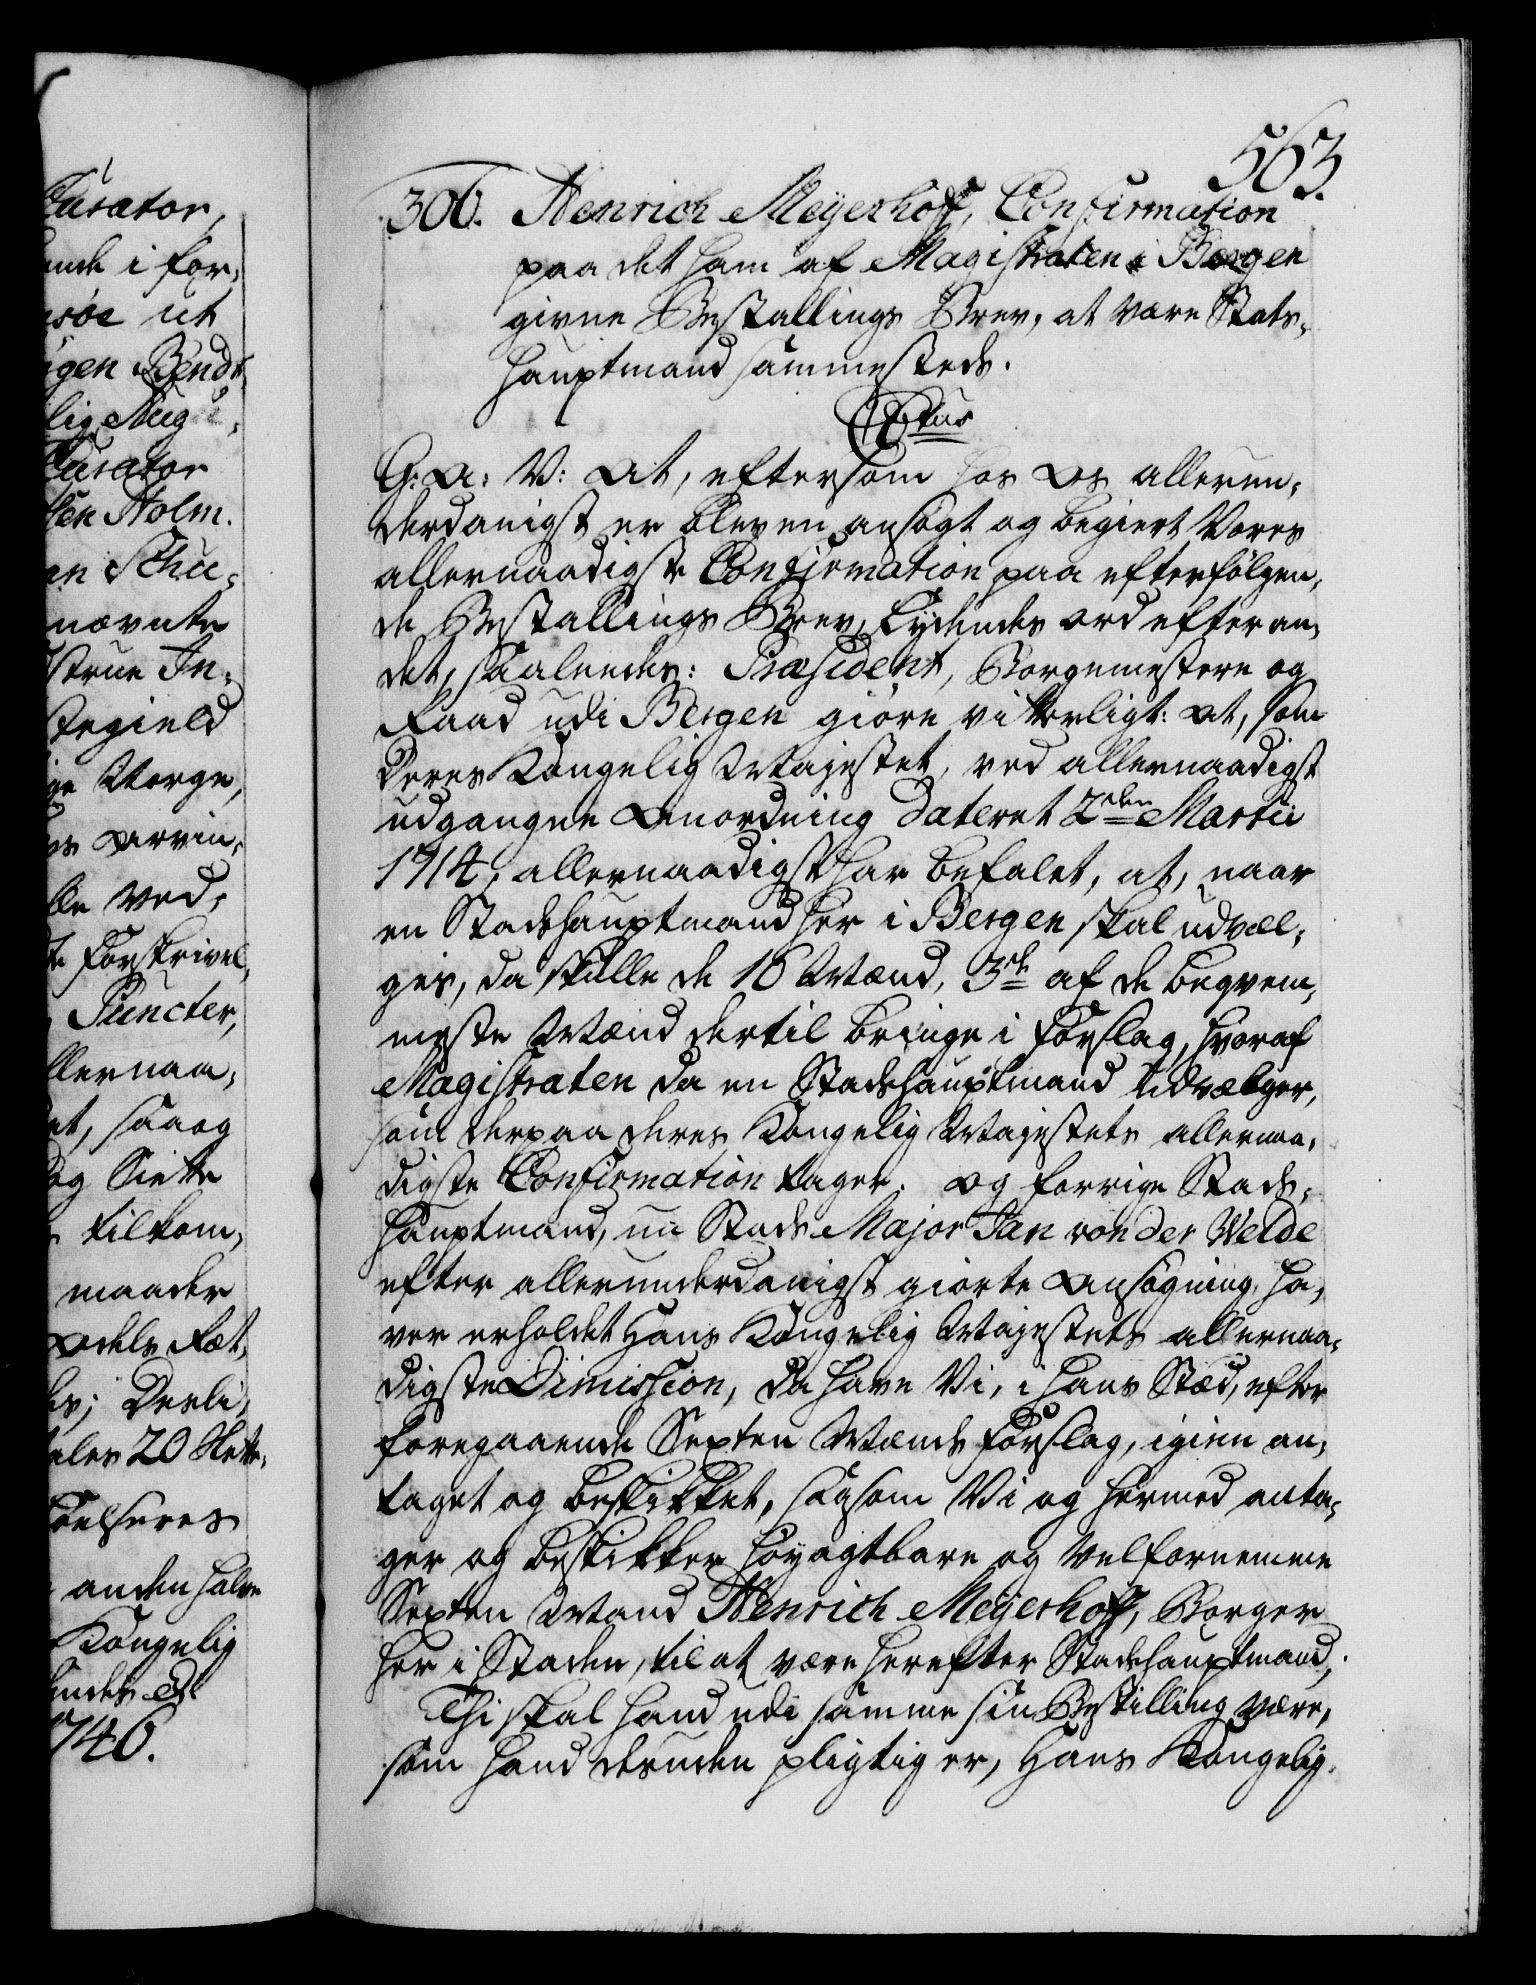 Curator,
ende i for¬
nsøe ut
ygen Bendt
lig Aug
Curator
sen Holm.
an Schu¬
nævnte
strue In¬
stegield
ge Værge,
es Arvin¬
lle ved¬
te Forskrivel¬
Puncter,
llernaa¬
et, saa og
og Siette
tilkom¬
maader
Odels Ræt¬
es; Derli¬
eles 20 Slette¬
anden halve
Kongelig
1746.
563.
306. Henrich Meyerhoff, Confirmation
paa det ham af Magistraten i Bergen
givne Bestallings Brev, at være Stats¬
hauptmand sammesteds.
C6tus
G: A: V: At, eftersom hos Os allerun¬
derdanigst er bleven ansøgt og begiert Vores
allernaadigste Confirmation paa efterfølgen¬
de Bestallings Brev, Lydendes ord efter an¬
det, saaledes: Præsident, Borgemestere og
Raad udi Bergen giøre vitterligt: At, som
Deres Kongelig Majestet, ved allernaadigst
udgangne Anordning Dateret 2den Martii
1714, allernaadigst har befalet, at, naar
en Stadshauptmand her i Bergen skal udvæl¬
ges, da skulle de 16 Mænd, 3de af de beqvem¬
meste Mænd dertil bringe i Forslag, hvoraf
Magistraten da en Stadshauptmand udvælger,
som derpaa deres Kongelig Majestets allernaa¬
digste Confirmation tager. Og forrige Stads¬
hauptmand, nu Stads Major Jan von der Velde
efter allerunderdanigst giorte Ansøgning, ha¬
ver erholdet Hans Kongelig Majestets allernaa¬
digste Dimission, da have Vi, i hans Stæd, efter
foregaaende Sexten Mænds Forslag, igien an¬
taget og beskikket, saasom Vi og hermed anta¬
ger og beskikker høyagtbare og Velfornemme
Sexten Mand Henrich Meyerhoff, Borger
her i Staden, til at være herefter Stadshauptmand,
Thi skal hand udi samme sin Bestilling være,
som hand desuden pligtig er, Hans Kongelig